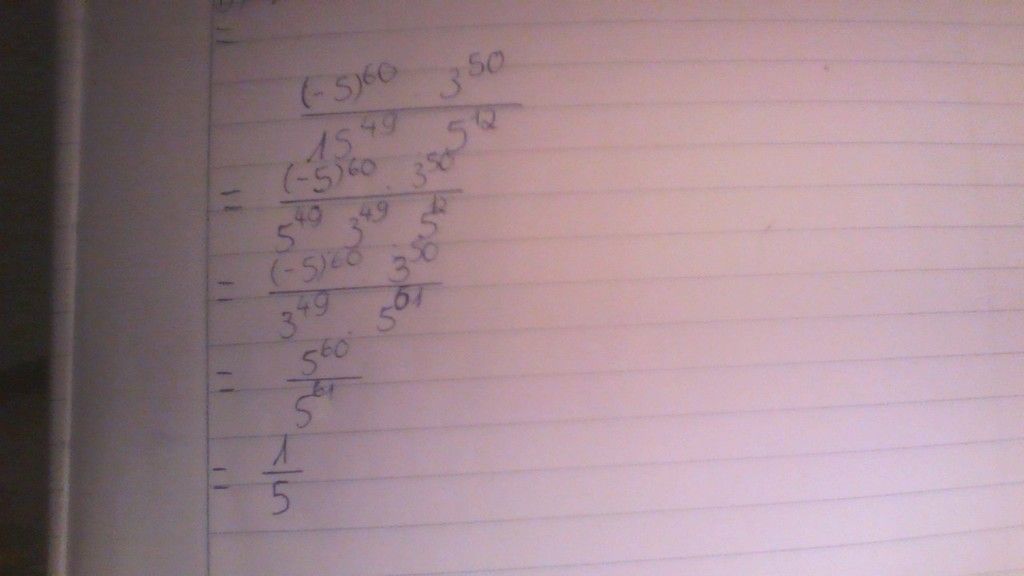 =
(-5)^60 . 3^50
15^49 . 5^12
= (-5)^60 . 3^50
5^49 3^49 . 5^12
= (-5)^60 3^50
3^49 . 5^61
= 5^60
5^61
= 1
5